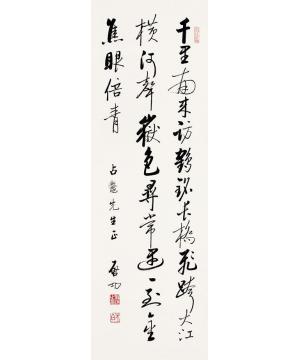 千里南来访鹤铭长桥飞跨大江
横河声岳色寻常遇一到金
焦眼倍青
占鳌先生正
启功